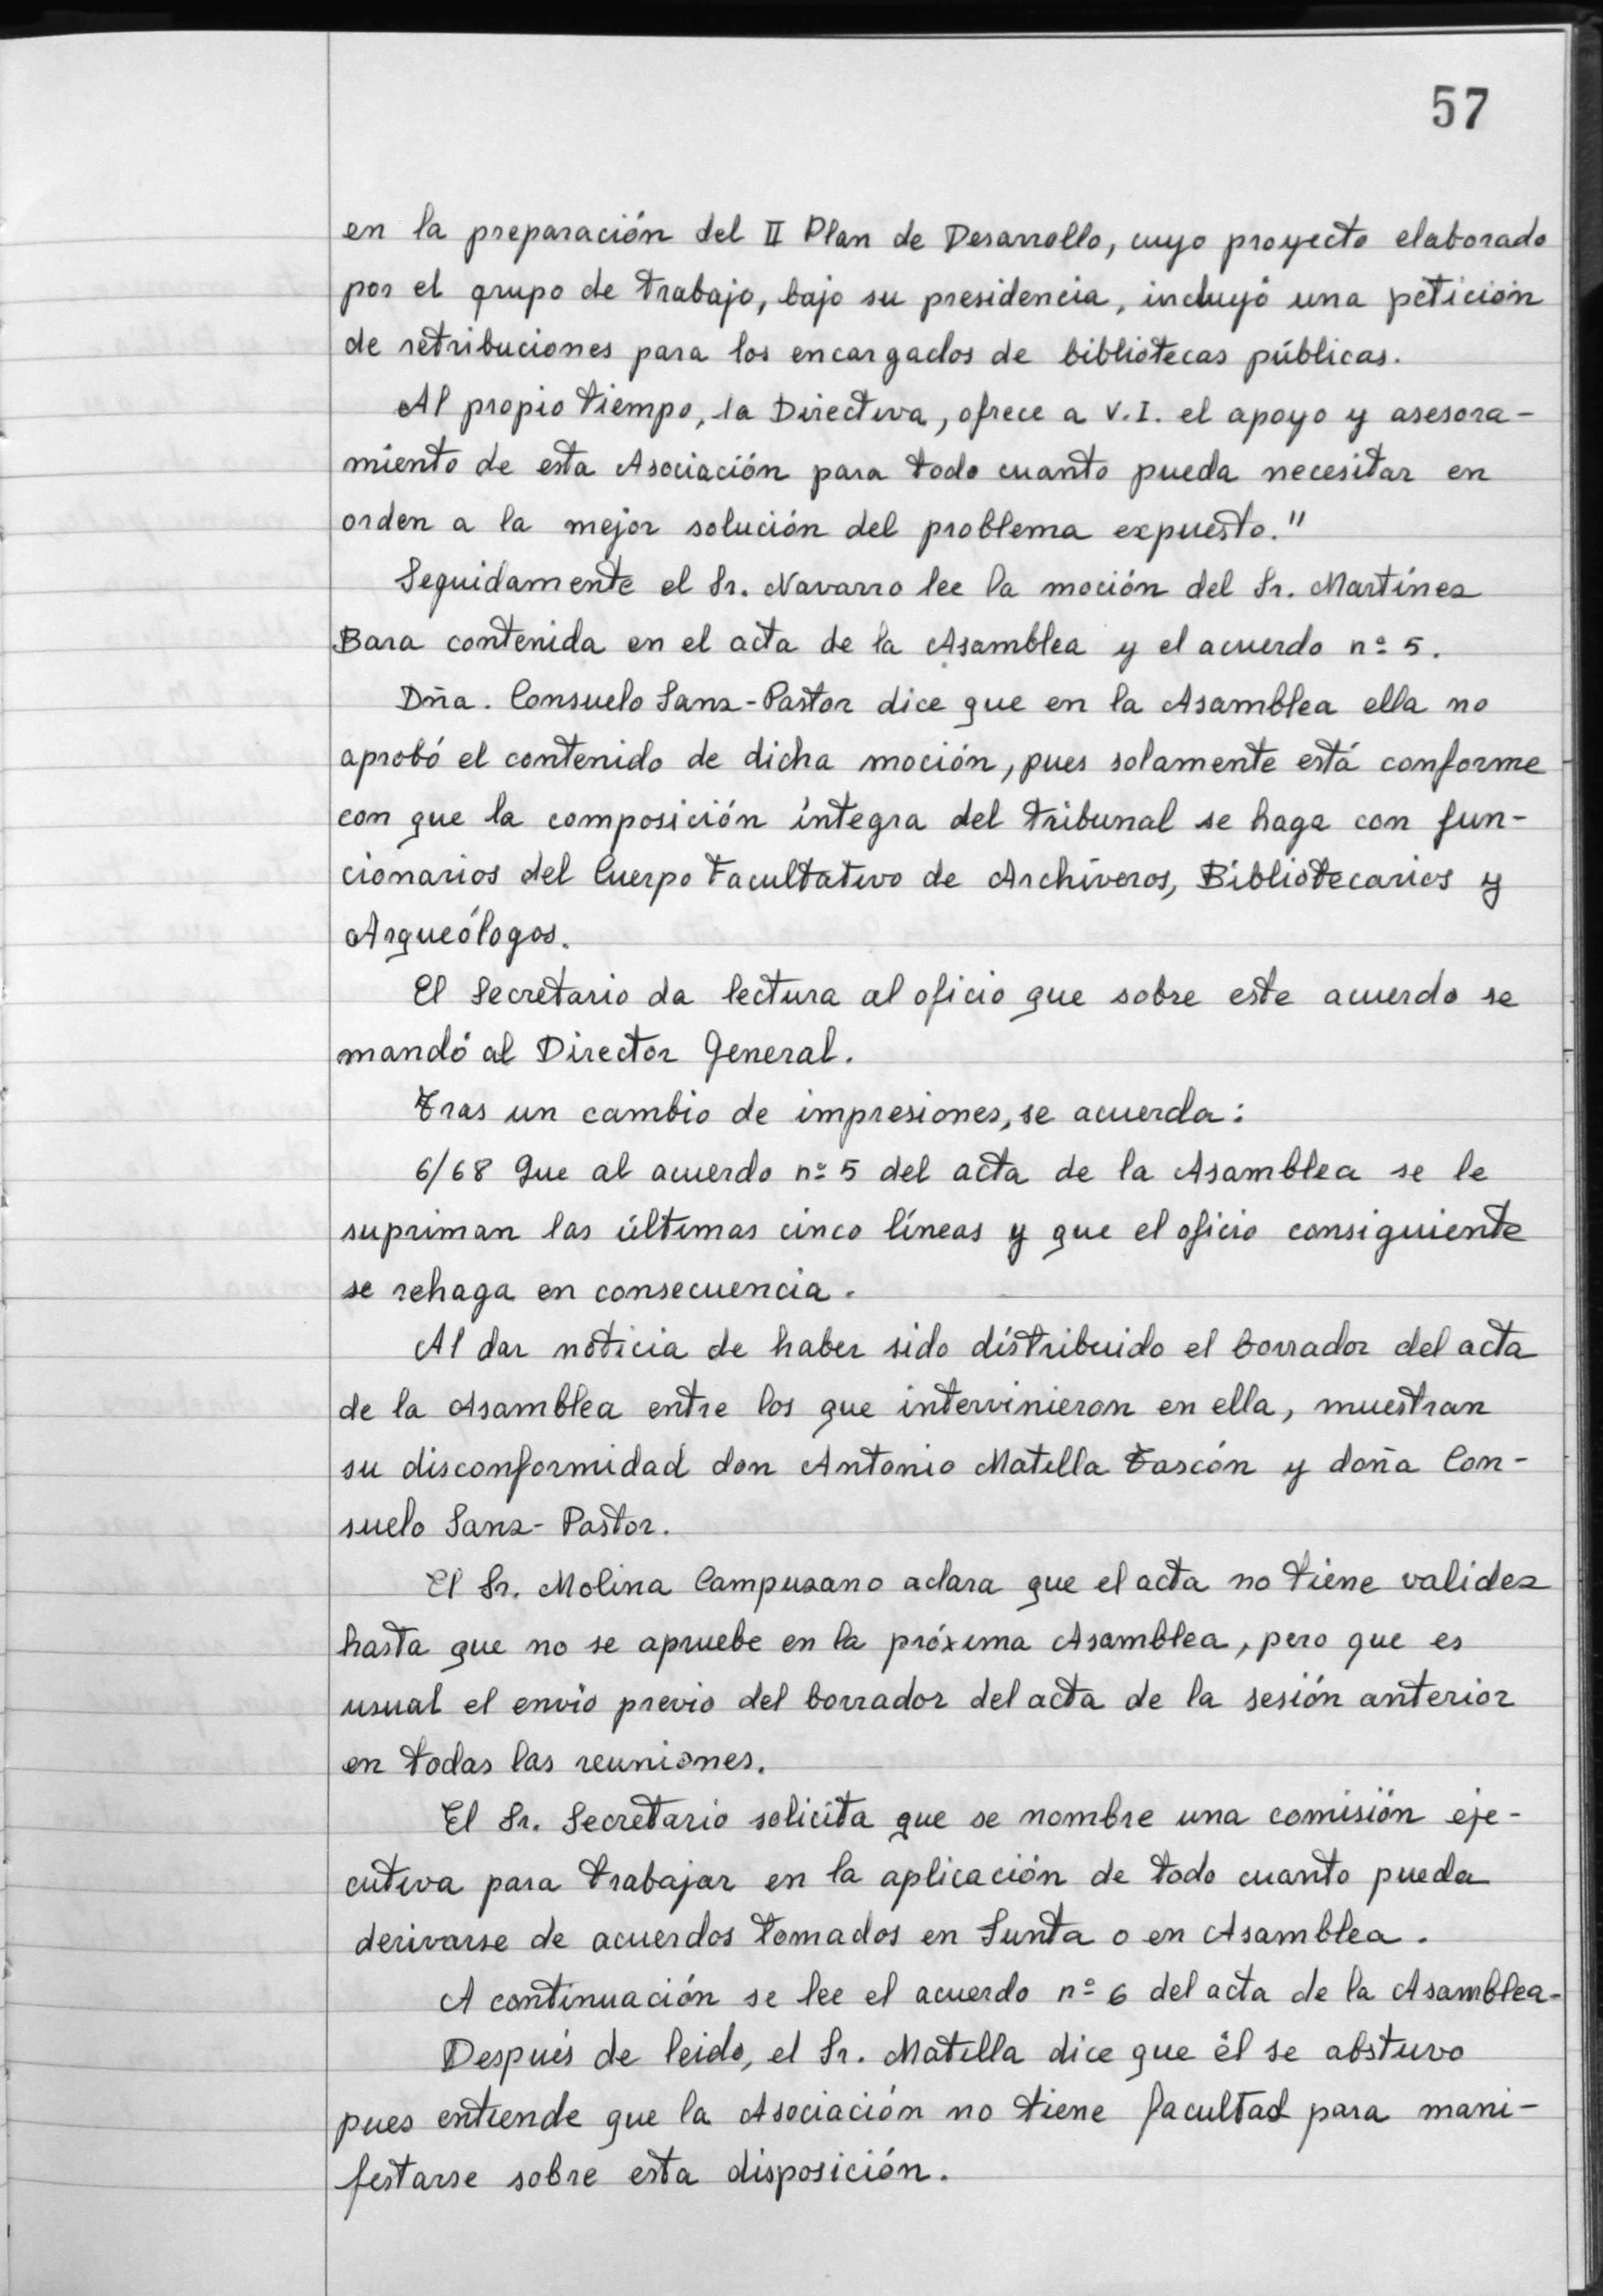 57
en la preparación del II Plan de Desarrollo, cuyo proyecto elaborado
por el grupo de trabajo, bajo su presidencia, incluyó una petición
de retribuciones para los encargados de bibliotecas públicas.
Al propio tiempo, la Directiva, ofrece a V.I. el apoyo y asesora-
miento de esta Asociación para todo cuanto pueda necesitar en
orden a la mejor solución del problema expuesto."
Seguidamente el Sr. Navarro lee la moción del Sr. Martínez
Bara contenida en el acta de la Asamblea y el acuerdo nº 5.
Dña. Consuelo Sanz-Pastor dice que en la Asamblea ella no
aprobó el contenido de dicha moción, pues solamente está conforme
con que la composición íntegra del tribunal se haga con fun-
cionarios del Cuerpo Facultativo de Archiveros, Bibliotecarios y
Arqueólogos.
El Secretario da lectura al oficio que sobre este acuerdo se
mandó al Director General.
Tras un cambio de impresiones, se acuerda:
6/68 Que al acuerdo nº 5 del acta de la Asamblea se le
supriman las últimas cinco líneas y que el oficio consiguiente
se rehaga en consecuencia.
Al dar noticia de haber sido distribuido el borrador del acta
de la Asamblea entre los que intervinieron en ella, muestran
su disconformidad don Antonio Matilla Tascón y doña Con-
suelo Sanz-Pastor.
El Sr. Molina Campuzano aclara que el acta no tiene validez
hasta que no se apruebe en la próxima Asamblea, pero que es
usual el envío previo del borrador del acta de la sesión anterior
en todas las reuniones.
El Sr. Secretario solicita que se nombre una comisión eje-
cutiva para trabajar en la aplicación de todo cuanto pueda
derivarse de acuerdos tomados en Junta o en Asamblea.
A continuación se lee el acuerdo nº 6 del acta de la Asamblea.
Después de leido, el Sr. Matilla dice que él se abstuvo
pues entiende que la Asociación no tiene facultad para mani-
festarse sobre esta disposición.